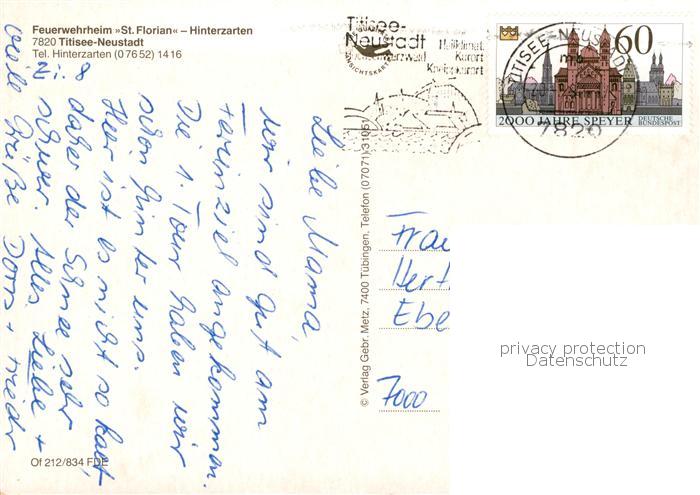 Feuerwehrheim »St. Florian« – Hinterzarten
7820 Titisee-Neustadt
Tel. Hinterzarten (0 76 52) 14 16
Zi. 8
Liebe Mama,
wir sind gut am
Ferienziel angekommen.
Die 1. Tour haben wir
schon hinter uns.
Hier ist es nicht so kalt,
daher der Schnee sehr
schwer. Alles Liebe +
viele Grüße Doris +
Of 212/834 FDE
© Verlag Gebr. Metz, 7400 Tübingen, Telefon (07071) 31051
Titisee-
Neustadt
Heilklimat.
Kurort
Kneippkurort
TITISEE-NEUSTADT
7820
60
2000 JAHRE SPEYER
DEUTSCHE
BUNDESPOST
Frau
Hert
Ebe
7000
privacy protection
Datenschutz